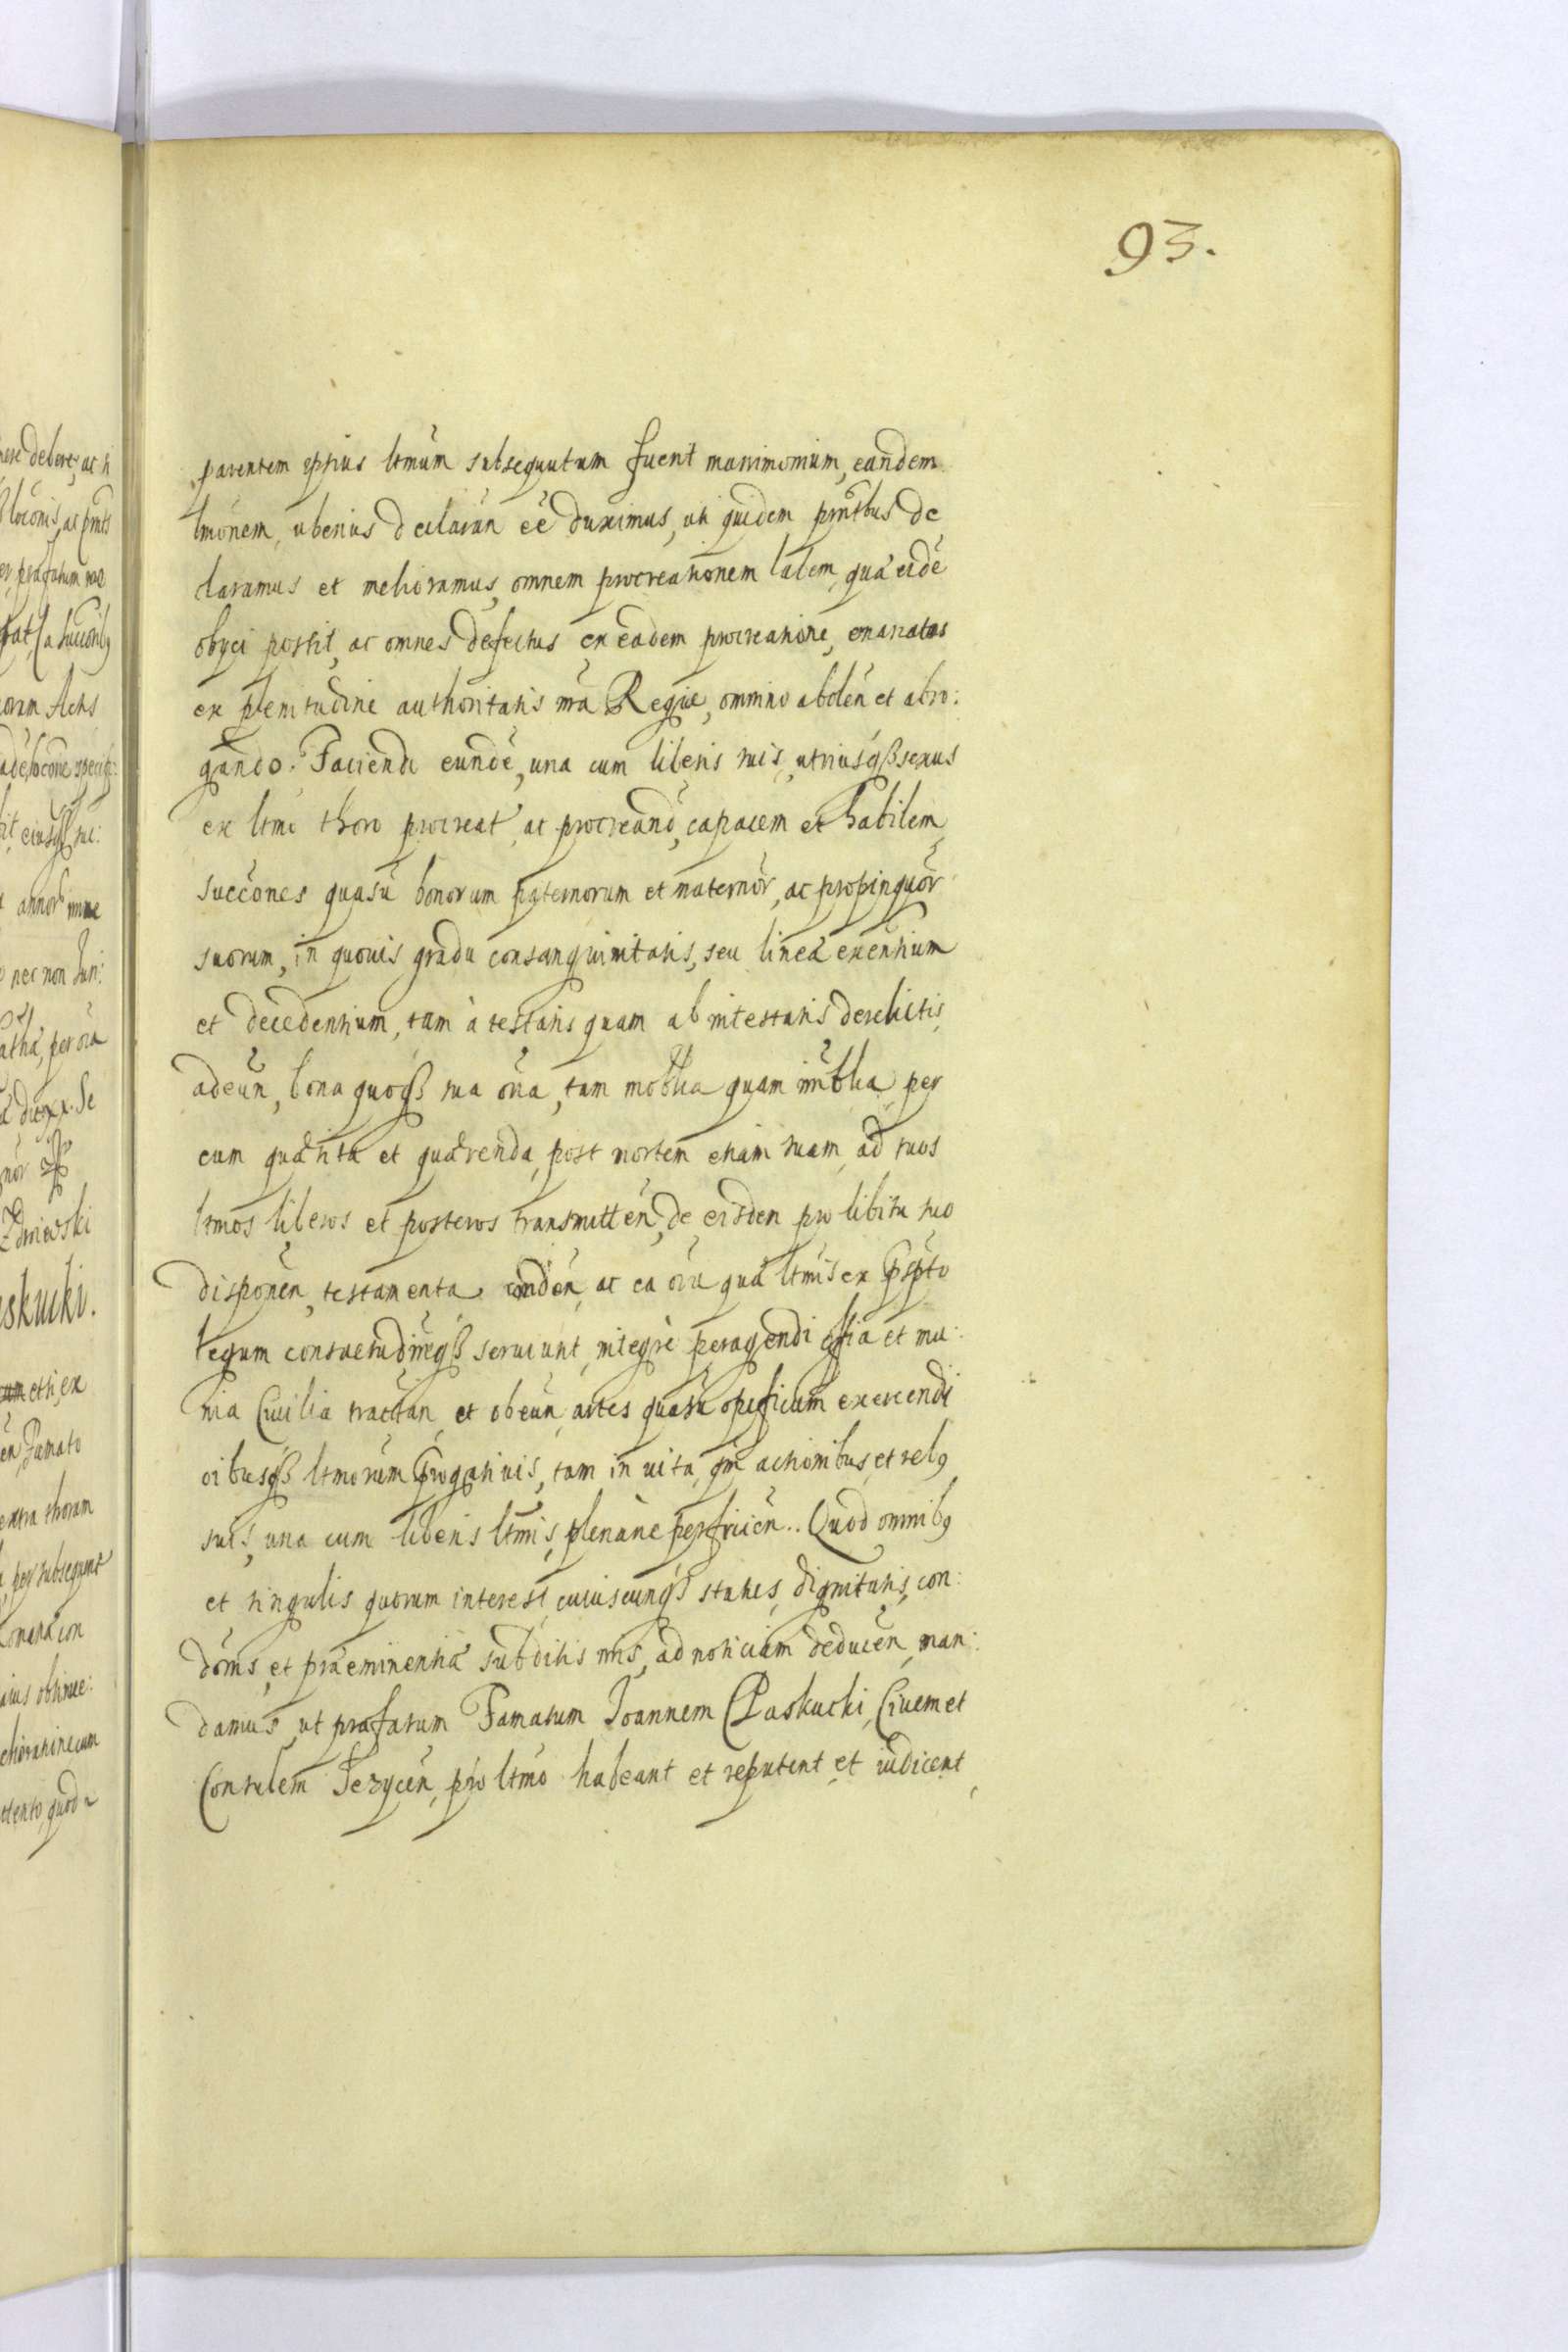 93.
parentem ippius ltmum subsequutum fuerit matrimonium, eandem
ltmonem, uberius declarań eē duximus, uti quidem pnťbus de
claramus et melioramus, omnem procreationem talem, quæ eidē
obyci possit, ac omnes defectus ex eadem procreatione, emanatos
ex plenitudine authoritatis nrā Regiæ, omnino abolēn et abro:
gando. Faciendi eundē, una cum liberis suis, utriusq̃ß sexus
ex ltmo thoro procreat, ac procreand, capacem et habilem
succōnes quasũ bonorum paternorum et maternōr, ac propinquōr
suorum, in quouis gradu consanguinitatis, seu lineā exentium
et decedentium, tam à testatis quam ab intestatis derelictis
adeūn, bona quoq̃ß sua oīa, tam mobłia quam im̃błia per
eum quæsita et quærenda, post mortem etiam suam, ad suos
ltmos liberos et posteros transmittēn, de eisdem pro libitu suo
disponēn, testamenta condēn, ac ea oīa quæ ltmis ex pspto
legum consuetudineq̃ß seruiunt, integrè peragendi offia et mu:
nia Ciuilia tractan, et obeūn, artes quasũ opificum exercendi
oibusq̃ß ltmorum progatiuis, tam in uita, qm̃ actionibus, et reb9
suis, una cum liberis ltmis, plenariè perfruēn.. Quod omnib9
et singulis quorum interest, cuiuscunq̃ß status, dignitatis, con:
dōnis, et præeminentiæ subditis nr̃is, ad noticiam deducēn, man:
damus, ut præfatum Famatum Joannem Płaskucki, Ciuem et
Consulem Jezycēn, pro ltmo habeant et reputent, et iudicent